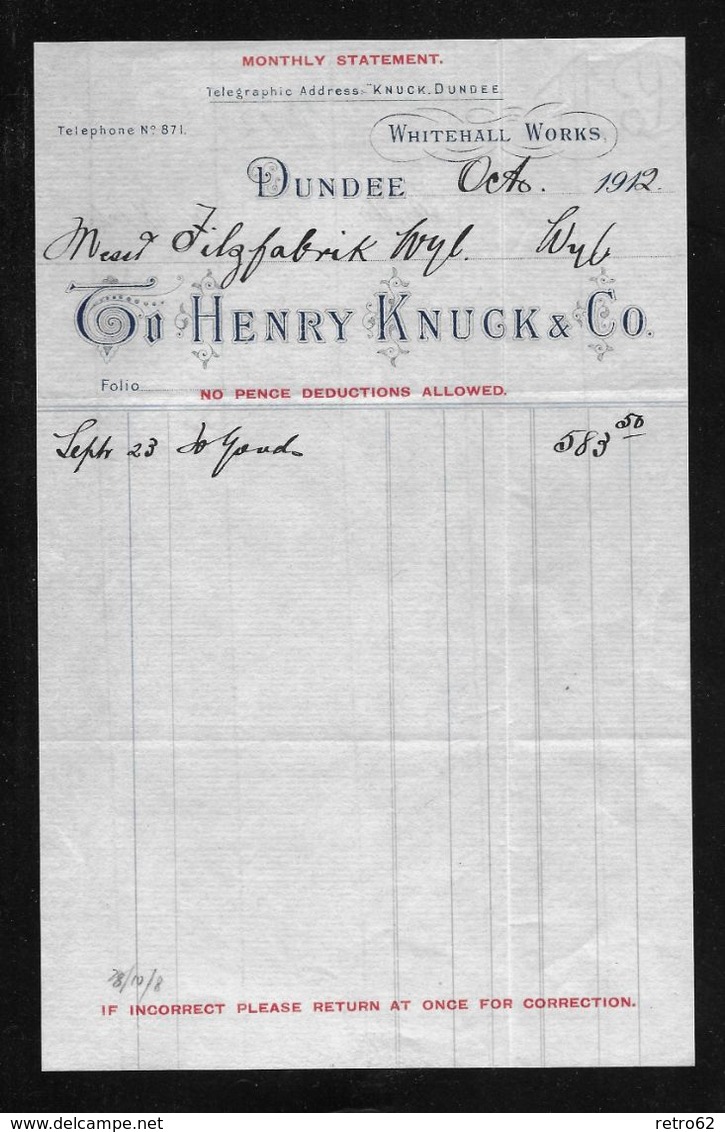 MONTHLY STATEMENT.
Telegraphic Address:-"KNUCK, DUNDEE
Telephone No 871.
WHITEHALL WORKS,
DUNDEE Octo. 1912.
Messrs Filzfabrik Wyl. Wyl
To HENRY KNUCK & Co.
Folio
NO PENCE DEDUCTIONS ALLOWED.
Septr 23 To Goods 583 50
IF INCORRECT PLEASE RETURN AT ONCE FOR CORRECTION.
delcampe.net
retro62